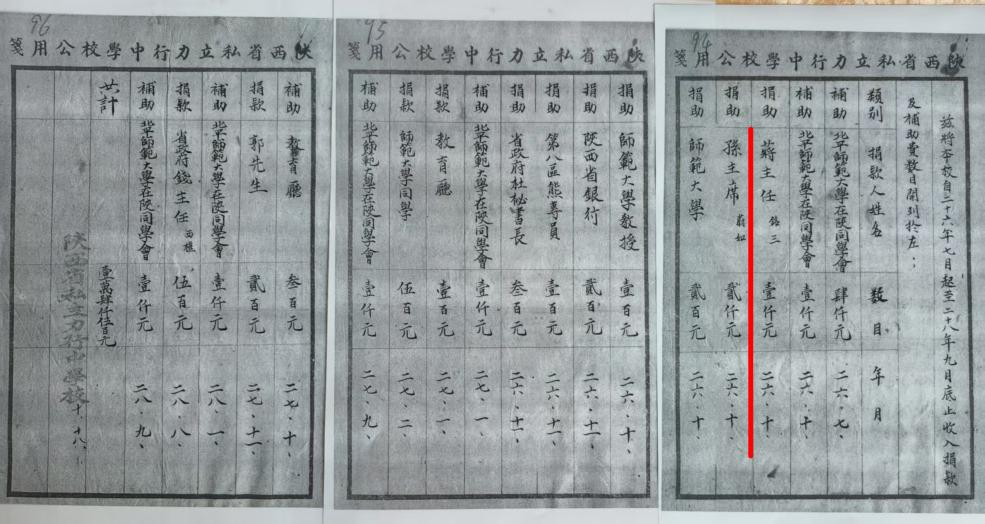 94
陝西省私立力行中學校公用箋
茲將本校自二十六年七月起至二八年九月底止收入捐款
及補助費數目開列於左：
類別 捐款人姓名 數目 年月
補助 北平師範大學在陝同學會 肆仟元 二六、七、
補助 北平師範大學在陝同學會 壹仟元 二六、十、
捐助 蔣主任 銘三 壹仟元 二六、十、
捐助 孫主席 蔚如 貳仟元 二六、十、
捐助 師範大學 貳百元 二六、十、
95
陝西省私立力行中學校公用箋
捐助 師範大學教授 壹百元 二六、十、
捐助 陝西省銀行 貳百元 二六、十一、
捐助 第八區熊專員 壹百元 二六、十一、
捐助 省政府杜秘書長 叁百元 二六、十一、
補助 北平師範大學在陝同學會 壹仟元 二七、一、
捐款 教育廳 壹百元 二七、一、
捐款 師範大學同學 伍百元 二七、二、
補助 北平師範大學在陝同學會 壹仟元 二七、九、
96
陝西省私立力行中學校公用箋
補助 教育廳 叁百元 二七、十、
捐款 郭先生 貳百元 二七、十一、
補助 北平師範大學在陝同學會 壹仟元 二八、一、
捐款 省政府錢主任 伍百元 二八、八、
補助 北平師範大學在陝同學會 壹仟元 二八、九、
共計 壹萬肆仟伍百元
陝西省私立力行中學校 十、十八、